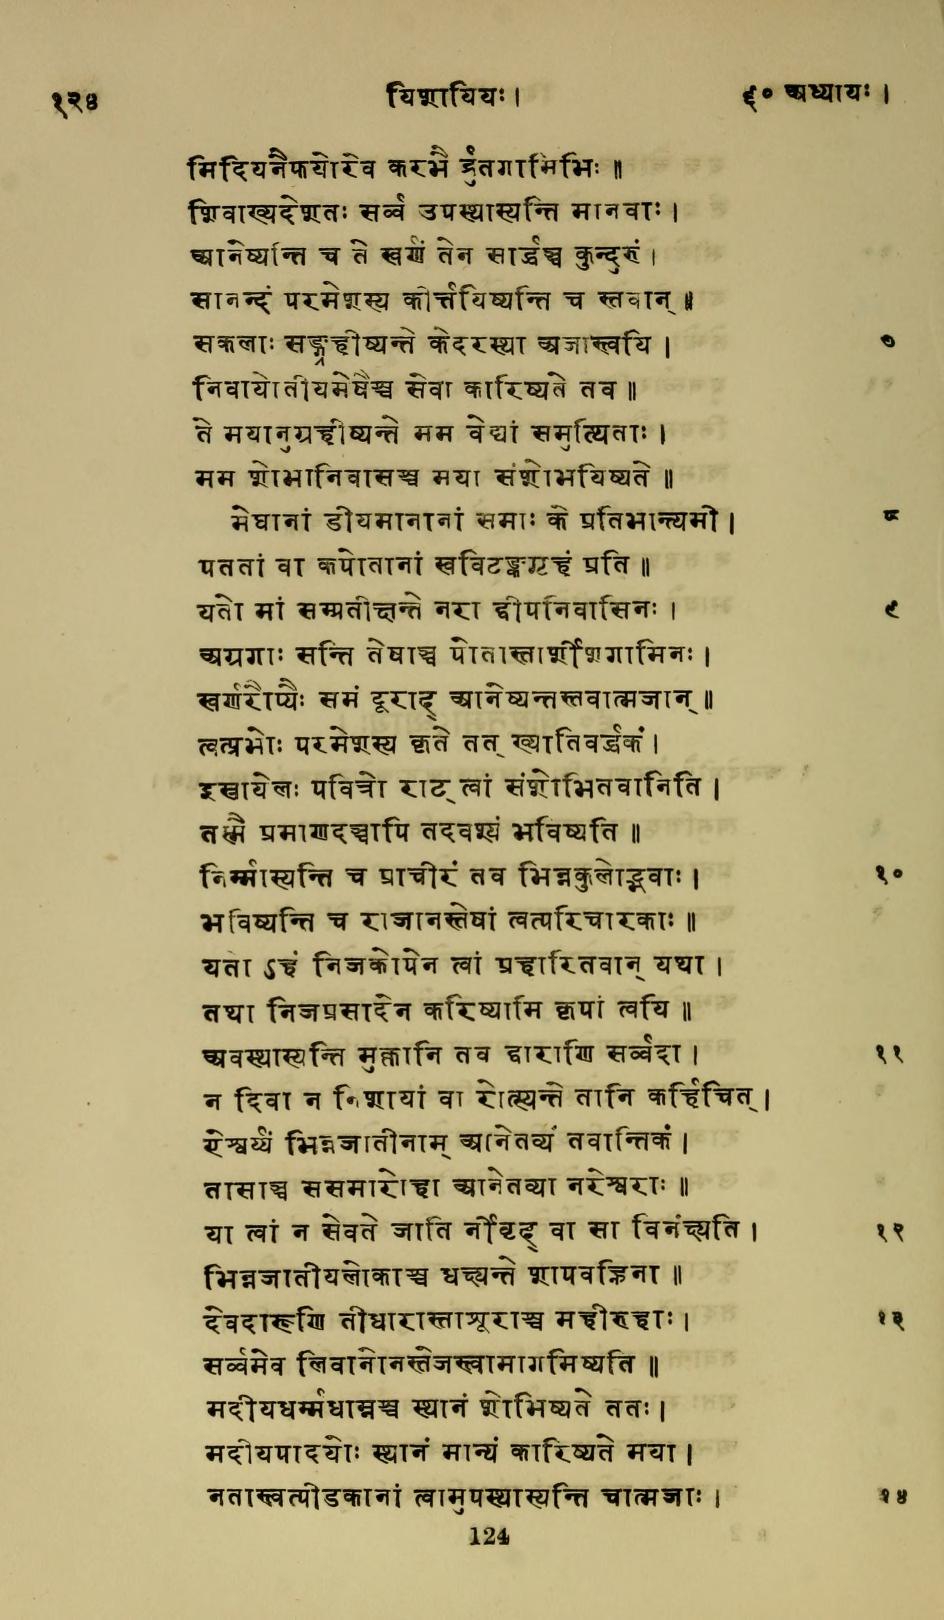 १२४ यिशायियः। ६० अध्यायः।
मिदियनैफयोरेव करभै र्द्रुतगामिभिः॥
शिवाख्यदेशतः सर्व्व उपस्थास्यन्ति मानवाः।
आनेष्यन्ति च ते स्वर्णं तेन सार्द्धञ्च कुन्दुरुं।
सानन्दं परमेशस्य कीर्त्तयिष्यन्ति च स्तवान्॥
सकलाः सङ्ग्रहीष्यन्ते केदरस्था अजास्त्वयि। ७
निवायोतीयमेषैश्च सेवा कारिष्यते तव॥
ते मयानुग्रहीष्यन्ते मम वेद्यां समुत्थिताः।
मम शोभानिवासश्च मया संशोभयिष्यते॥
मेघानां डीयमानानां समाः के प्रतिभान्त्यमी। ८
पततां वा कपोतानां स्वविटङ्कगृहं प्रति॥
यतो मां सम्प्रतीक्षन्ते नरा द्वीपनिवासिनः। ९
अग्रगाः सन्ति तेषाञ्च पोतास्तार्शीशगामिनः।
स्वर्णरौप्यैः समं दूराद् आनेष्यन्तस्तवात्मजान्॥
त्वत्प्रभोः परमेशस्य कृते तत् ख्यातिवर्द्धकं।
इस्रायेलः पवित्रो राट् त्वां संशोभितवानिति।
तस्मै प्रमाणदञ्चापि तदवश्यं भविष्यति॥
निर्म्मास्यन्ति च प्राचीरं तव भिन्नकुलोद्भवाः। १०
भविष्यन्ति च राजानस्तेषां त्वत्परिचारकाः॥
यता ऽहं निजकोपेन त्वां प्रहारितवान् यथा।
तथा निजप्रसादेन करिष्यामि कृपां त्वयि॥
अवस्थास्यन्ति मुक्तानि तव द्वाराणि सर्व्वदा। ११
न दिवा न निशायां वा रोत्स्यन्ते तानि कर्हिचित्।
ऐश्वर्य्यं भिन्नजातीनाम् आनेतव्यं तवान्तिकं।
तासाञ्च ससमारोहा आनेतव्या नरेश्वराः॥
या त्वां न सेवते जाति र्नीवृद् वा सा विनंक्ष्यति। १२
भिन्नजातीयलोकाश्च धक्ष्यन्ते शापवह्निना॥
देवदारूणि तीधारास्ताशूराश्च महीरुहाः। १३
सर्व्वमेव लिवानोनस्तेजस्त्वामागमिष्यति॥
मदीयधर्म्मधाम्नश्च स्थानं शोभिष्यते ततः।
मदीयपादयोः स्थानं मान्यं कारिष्यते मया।
नतास्त्वत्पीडकानां त्वामुपस्थास्यन्ति चात्मजाः। १४
124